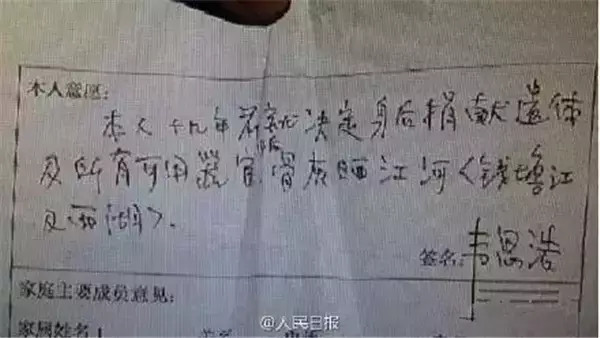 本人意愿:
本人十九年前就决定身后捐献遗体
及所有可用器官,骨灰洒江河<钱塘江
及西湖>.
签名:韦思浩
家庭主要成员意见:
家属姓名:
@人民日报